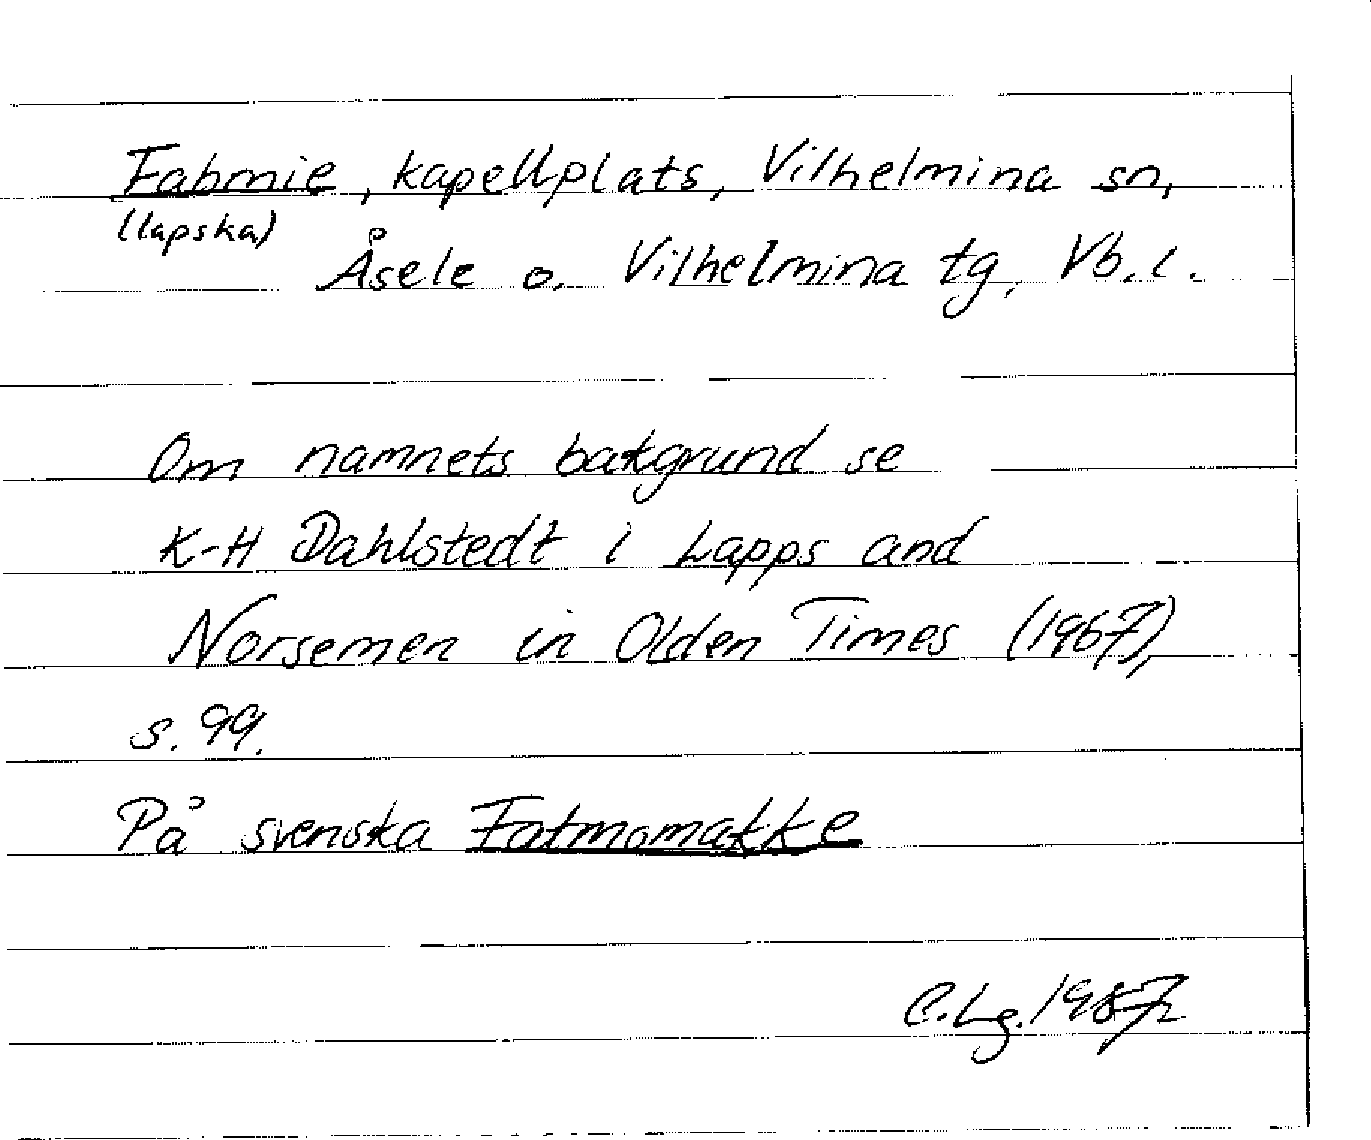 Fabmie, kapellplats, Vilhelmina sn,
(lapska)
Åsele o. Vilhelmina tg, Vb. l.
Om namnets bakgrund se
K-H Dahlstedt i Lapps and
Norsemen in Olden Times (1967),
s. 99.
På svenska Fatmomakke
C.Lg. 1987